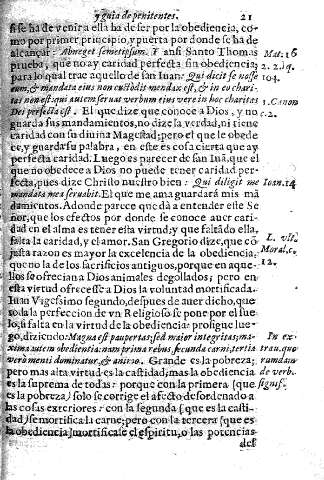 y guia de penitentes. 21
si se ha de venir a ella ha de ser por la obediencia, co
mo por primer principio, y puerta por donde se ha de
alcançar. Abneget semetipsum. Y ansi Santo Thomas
prueba, que no ay caridad perfecta sin obediencia;
para lo qual trae aquello de san Iuan: Qui dicit se nosse
eum, & mandata eius non custodit mendax est, & in eo chari-
tas non est: qui autem seruat verbum eius vere in hoc charitas
Dei perfecta est. El que dize que conoce a Dios, y no
guarda sus mandamientos, no dize la verdad, ni tiene
caridad con su diuina Magestad; pero el que le obede
ce, y guarda su palabra, en este es cosa cierta que ay
perfecta caridad. Luego es parecer de san Iuā, que el
que no obedece a Dios no puede tener caridad per-
fecta, pues dize Christo nuestro bien: Qui diligit me
mandata mea seruabit. El que me ama guardará mis mā
damientos. Adonde parece que dà a entender este Se
ñor, que los efectos por donde se conoce auer cari-
dad en el alma es tener esta virtud; y que faltādo ella,
falta la caridad, y el amor. San Gregorio dize, que cō
justa razon es mayor la excelencia de la obediencia,
que no la de los sacrificios antiguos, porque en aque-
llos se ofrecian a Dios animales degollados; pero en
esta virtud ofrecesse a Dios la voluntad mortificada.
Iuan Vigessimo segundo, despues de auer dicho, que
toda la perfeccion de vn Religioso se pone por el sue
lo, si falta en la virtud de la obediencia prosigue lue-
go, diziendo: Magna est paupertas; sed maior integritas; ma-
xima autem obedientia: nam prima rebus, secunda carni, tertia
vero menti dominatur, & animo. Grande es la pobreza;
pero mas alta virtud es la castidad, mas la obediencia
es la suprema de todas: porque con la primera (que
es la pobreza) solo se corrige el afecto desordenado a
las cosas exteriores: con la segunda (que es la casti-
dad) se mortifica la carne; pero con la tercera (que es
la obediencia) mortificase el espiritu, o las potencias
del
Mat. 16
2. 2. q.
104.
1. Canon
c. 2.
Ioan. 14
L. vlt.
Moral. c.
12.
In ex-
trau. quo
rumdam
de verb.
signif.